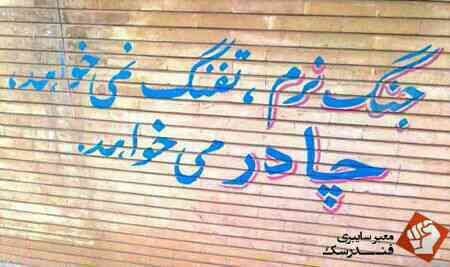 جنگ نرم، تفنگ نمی‌خواهد.
چادر می‌خواهد.
معبر سایبری
فندرسک